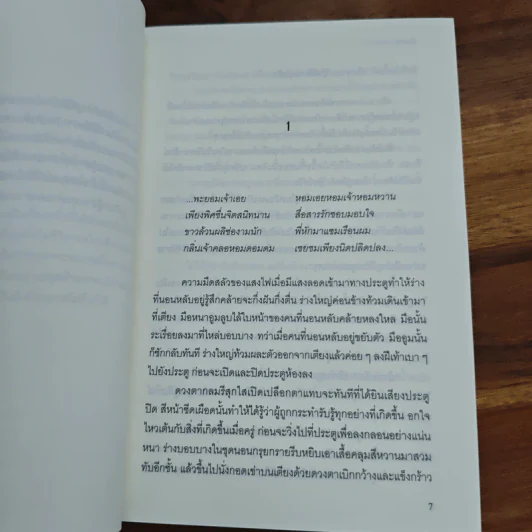 1
...พะยอมเจ้าเอย หอมเอยหอมเจ้าหอมหวาน
เพียงพิศชื่นจิตสนิทนาน สื่อสารรักชอบมอบใจ
ขาวด้วนผลิช่องามนัก พี่หักมาแซมเรือนผม
กลิ่นเจ้าคลอหอมดอมดม เชยชมเพียงนิดปลิดปลง...
ความมืดสลัวของแสงไฟเมื่อมีแสงลอดเข้ามาทางประตูทำให้ร่าง
ที่นอนหลับอยู่รู้สึกคล้ายจะกึ่งฝันกึ่งตื่น ร่างใหญ่ค่อนข้างท้วมเดินเข้ามา
ที่เตียง มือหนาอูมลูบไล้ใบหน้าของคนที่นอนหลับคล้ายหลงใหล มือนั้น
ระเรื่อยลงมาที่ไหล่บอบบาง ทว่าเมื่อคนที่นอนหลับอยู่ขยับตัว มืออูมนั้น
ก็ชักกลับทันที ร่างใหญ่ท้วมผละตัวออกจากเตียงแล้วค่อย ๆ ลงฝีเท้าเบา ๆ
ไปยังประตู ก่อนจะเปิดและปิดประตูห้องลง
ดวงตากลมรีสุกใสเปิดเปลือกตาแทบจะทันทีที่ได้ยินเสียงประตู
ปิด สีหน้าซีดเผือดนั้นทำให้ได้รู้ว่าผู้ถูกกระทำรับรู้ทุกอย่างที่เกิดขึ้น อกใจ
ไหวเต้นกับสิ่งที่เกิดขึ้นเมื่อครู่ ก่อนจะวิ่งไปที่ประตูเพื่อลงกลอนอย่างแน่น
หนา ร่างบอบบางในชุดนอนกรุยกรายรีบหยิบเอาเสื้อคลุมสีหวานมาสวม
ทับอีกชั้น แล้วขึ้นไปนั่งกอดเข่าบนเตียงด้วยดวงตาเบิกกว้างและแข็งกร้าว
7